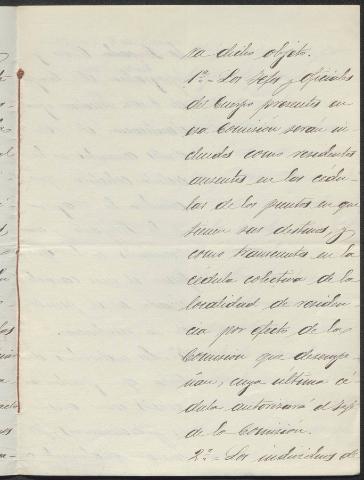 ra dicho objeto.
1º.- Los Jefes y oficiales
del Cuerpo presentes en
esa Comisión serán in
cluidos como residentes
ausentes en las cédu-
las de los puntos en que
tienen sus destinos, y
como transeuntes en la
cédula colectiva de la
localidad de residen
cia por efecto de la
Comisión que desempe
ñan, cuya última cé
dula autorizará el Jefe
de la Comisión.
2º.- Los individuos de